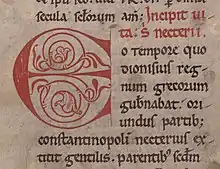 secula sclorum am̄. Incipit ui
ta. S necterii
Eo tempore quo
dionisius reg
num grecorum
gubnabat. ori
undus partib;
constantinopoli necterius ex
titit gentilis. parentibus secdm